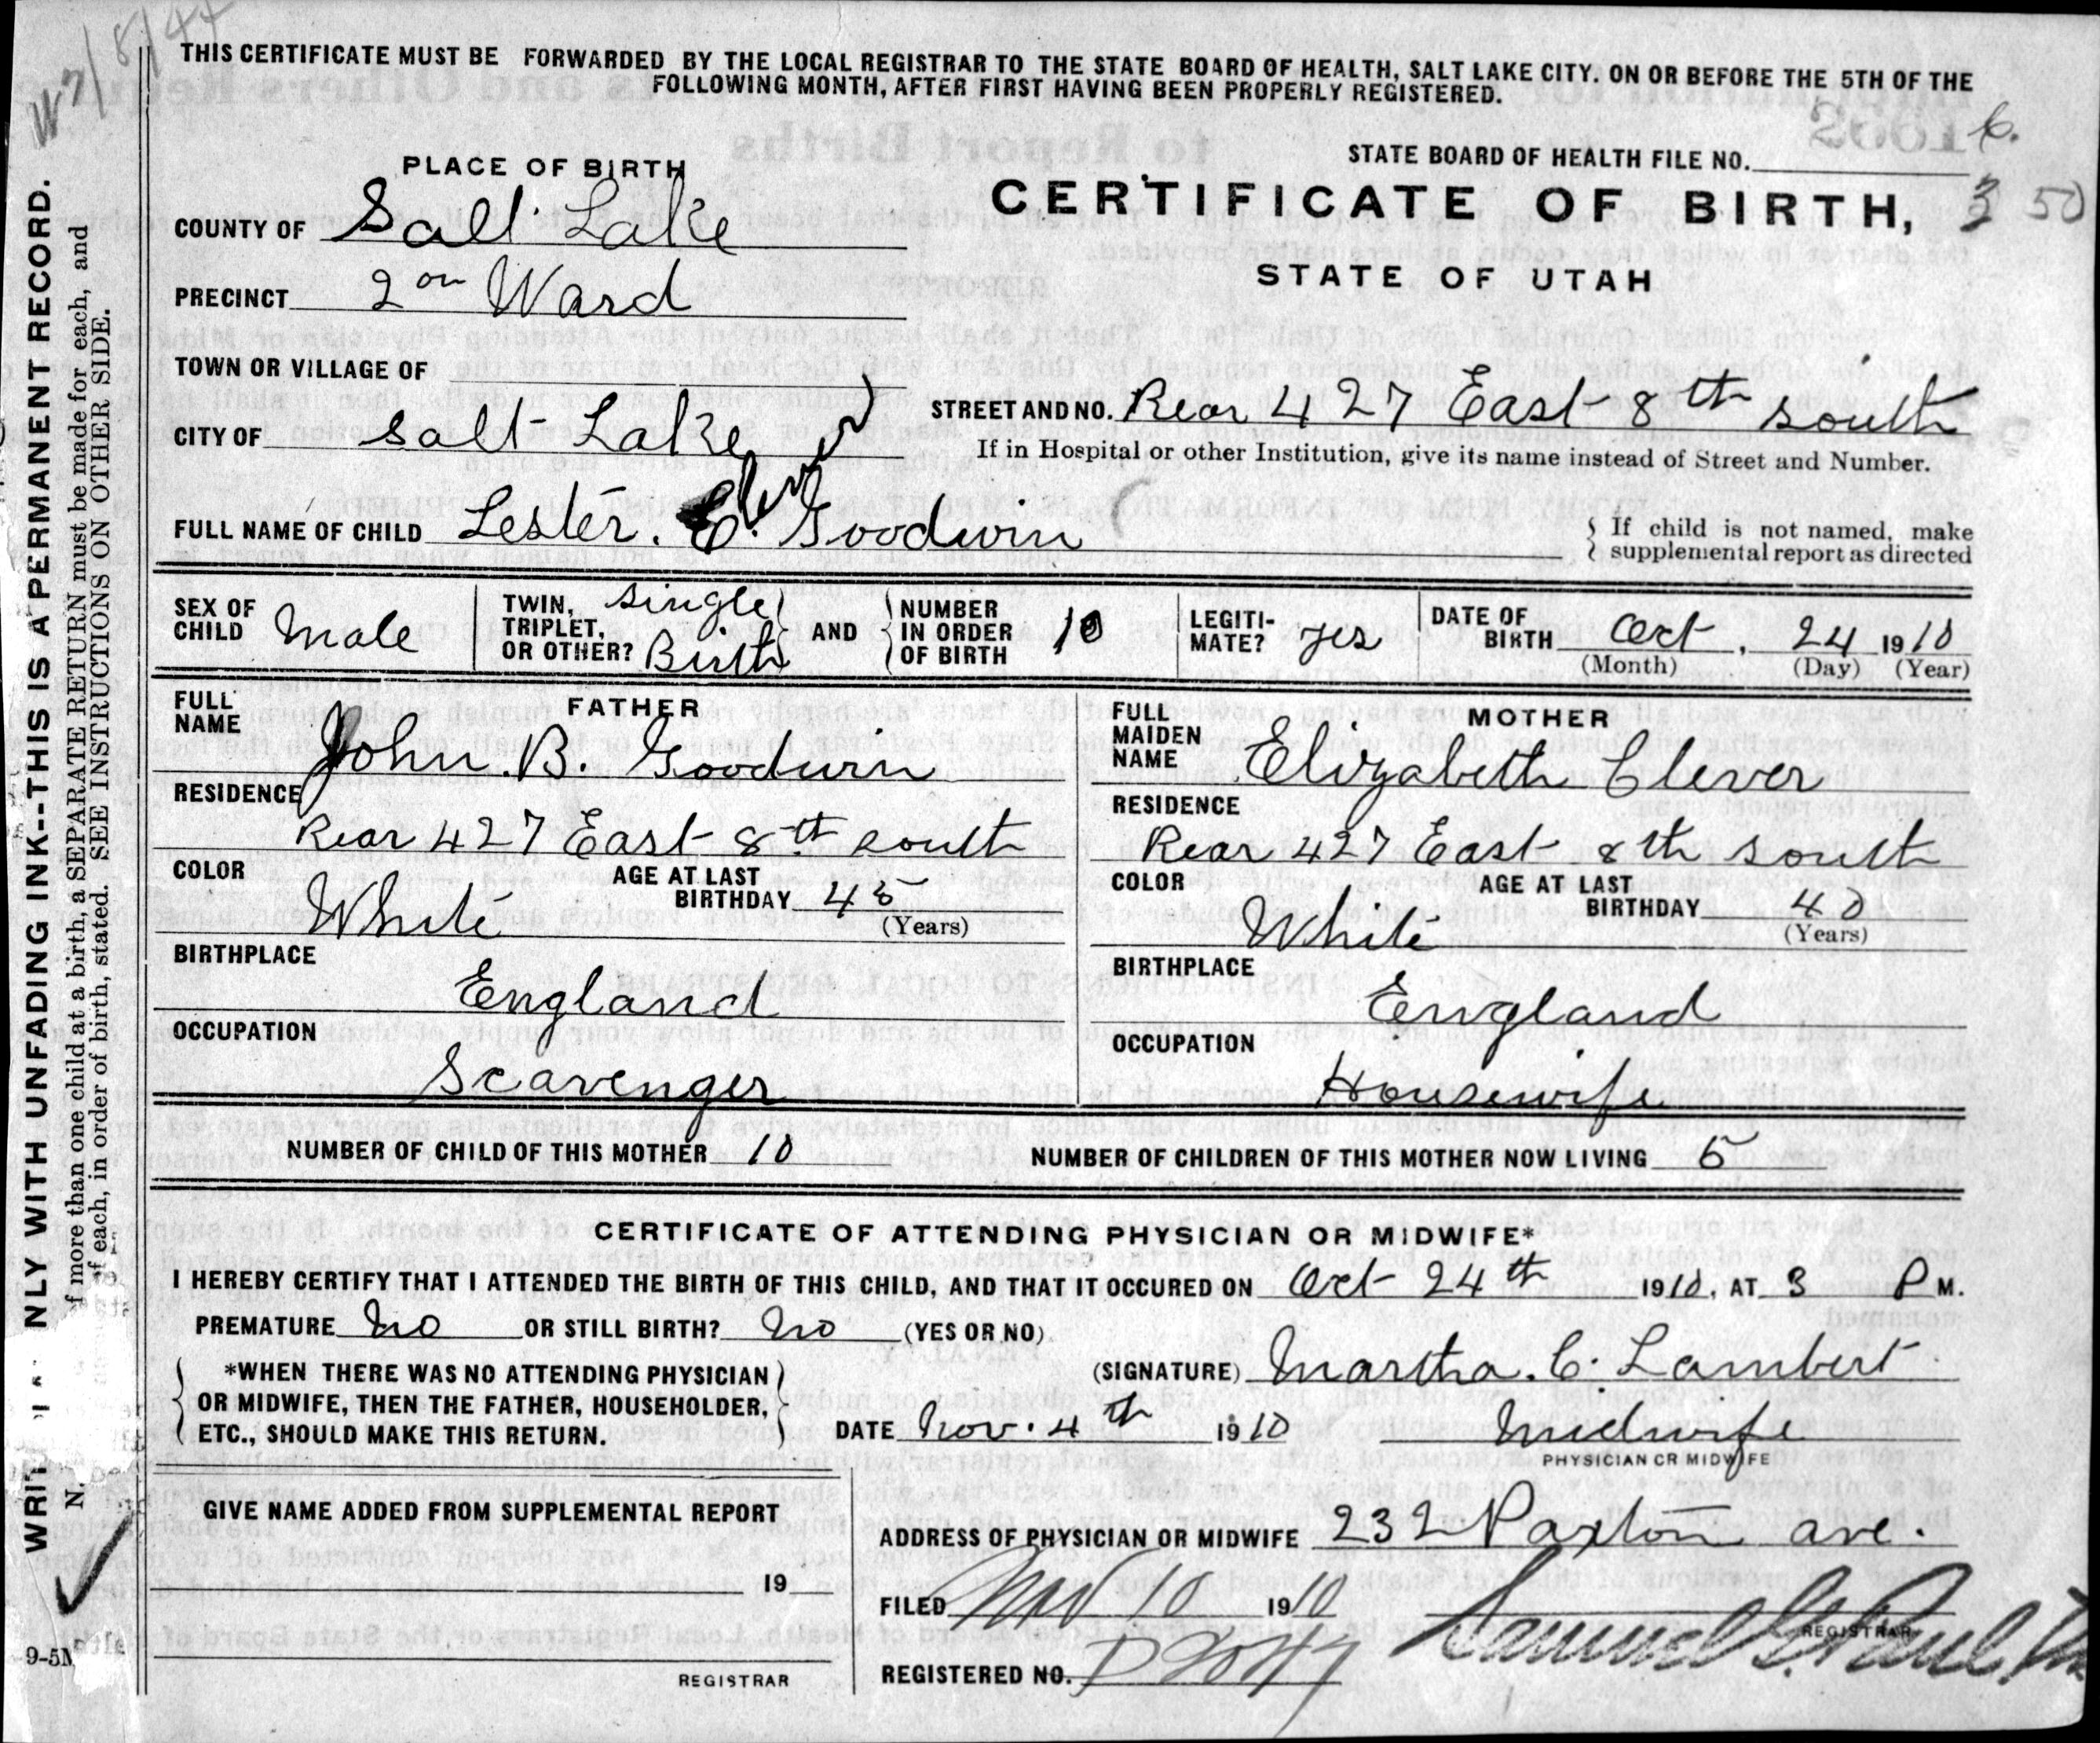 W 7/8/44
THIS CERTIFICATE MUST BE FORWARDED BY THE LOCAL REGISTRAR TO THE STATE BOARD OF HEALTH, SALT LAKE CITY. ON OR BEFORE THE 5TH OF THE
FOLLOWING MONTH, AFTER FIRST HAVING BEEN PROPERLY REGISTERED.
PLACE OF BIRTH
STATE BOARD OF HEALTH FILE NO.
CERTIFICATE OF BIRTH,
3 50
STATE OF UTAH
COUNTY OF Salt Lake
PRECINCT 2on Ward
TOWN OR VILLAGE OF
CITY OF Salt Lake
STREET AND NO. Rear 427 East 8th South
If in Hospital or other Institution, give its name instead of Street and Number.
Clever
FULL NAME OF CHILD Lester. C. Goodwin
If child is not named, make
supplemental report as directed
SEX OF CHILD Male
TWIN, TRIPLET, OR OTHER? Single Birth
AND
NUMBER IN ORDER OF BIRTH 10
LEGITI-MATE? yes
DATE OF BIRTH Oct. 24 1910
(Month) (Day) (Year)
FATHER
FULL NAME John. B. Goodwin
RESIDENCE
Rear 427 East 8th South
COLOR White
AGE AT LAST BIRTHDAY 45
(Years)
BIRTHPLACE
England
OCCUPATION
Scavenger
MOTHER
FULL MAIDEN NAME Elizabeth Clever
RESIDENCE
Rear 427 East 8th South
COLOR White
AGE AT LAST BIRTHDAY 40
(Years)
BIRTHPLACE
England
OCCUPATION
Housewife
NUMBER OF CHILD OF THIS MOTHER 10
NUMBER OF CHILDREN OF THIS MOTHER NOW LIVING 5
CERTIFICATE OF ATTENDING PHYSICIAN OR MIDWIFE*
I HEREBY CERTIFY THAT I ATTENDED THE BIRTH OF THIS CHILD, AND THAT IT OCCURED ON Oct 24th 1910, AT 3 P M.
PREMATURE No OR STILL BIRTH? No (YES OR NO)
*WHEN THERE WAS NO ATTENDING PHYSICIAN
OR MIDWIFE, THEN THE FATHER, HOUSEHOLDER,
ETC., SHOULD MAKE THIS RETURN.
(SIGNATURE) Martha. C. Lambert
DATE Nov. 4th 1910
Midwife
PHYSICIAN OR MIDWIFE
GIVE NAME ADDED FROM SUPPLEMENTAL REPORT
19
REGISTRAR
ADDRESS OF PHYSICIAN OR MIDWIFE 232 Paxton ave.
FILED Nov 10 1910
Samuel G. Paul
REGISTRAR
REGISTERED NO.
NLY WITH UNFADING INK--THIS IS A PERMANENT RECORD.
f more than one child at a birth, a SEPARATE RETURN must be made for each, and
f each, in order of birth, stated. SEE INSTRUCTIONS ON OTHER SIDE.
9-5M